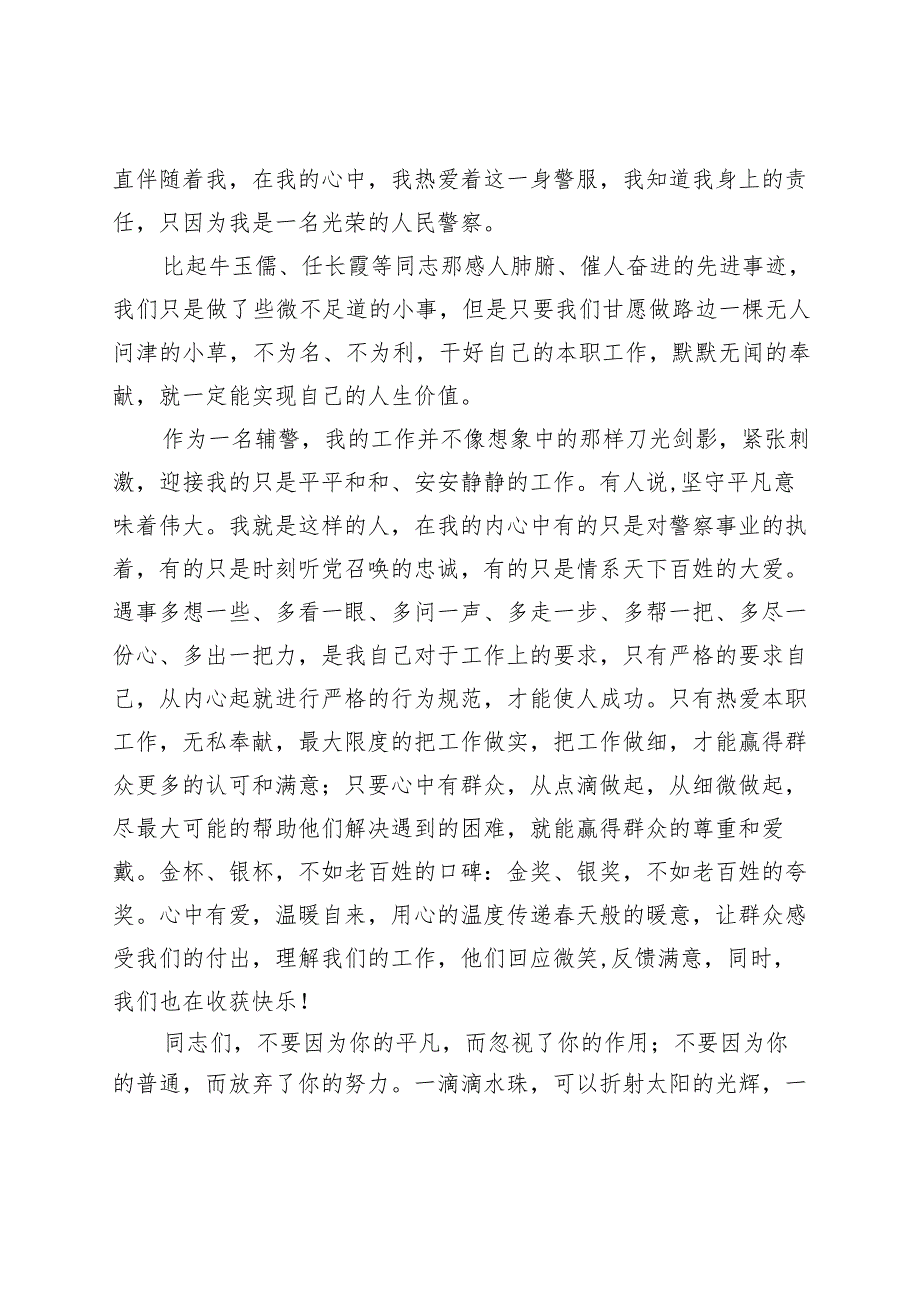 直伴随着我，在我的心中，我热爱着这一身警服，我知道我身上的责
任，只因为我是一名光荣的人民警察。
比起牛玉儒、任长霞等同志那感人肺腑、催人奋进的先进事迹，
我们只是做了些微不足道的小事，但是只要我们甘愿做路边一棵无人
问津的小草，不为名、不为利，干好自己的本职工作，默默无闻的奉
献，就一定能实现自己的人生价值。
作为一名辅警，我的工作并不像想象中的那样刀光剑影，紧张刺
激，迎接我的只是平平和和、安安静静的工作。有人说,坚守平凡意
味着伟大。我就是这样的人，在我的内心中有的只是对警察事业的执
着，有的只是时刻听党召唤的忠诚，有的只是情系天下百姓的大爱。
遇事多想一些、多看一眼、多问一声、多走一步、多帮一把、多尽一
份心、多出一把力，是我自己对于工作上的要求，只有严格的要求自
己，从内心起就进行严格的行为规范，才能使人成功。只有热爱本职
工作，无私奉献，最大限度的把工作做实，把工作做细，才能赢得群
众更多的认可和满意；只要心中有群众，从点滴做起，从细微做起，
尽最大可能的帮助他们解决遇到的困难，就能赢得群众的尊重和爱
戴。金杯、银杯，不如老百姓的口碑：金奖、银奖，不如老百姓的夸
奖。心中有爱，温暖自来，用心的温度传递春天般的暖意，让群众感
受我们的付出，理解我们的工作，他们回应微笑,反馈满意，同时，
我们也在收获快乐！
同志们，不要因为你的平凡，而忽视了你的作用；不要因为你
的普通，而放弃了你的努力。一滴滴水珠，可以折射太阳的光辉，一